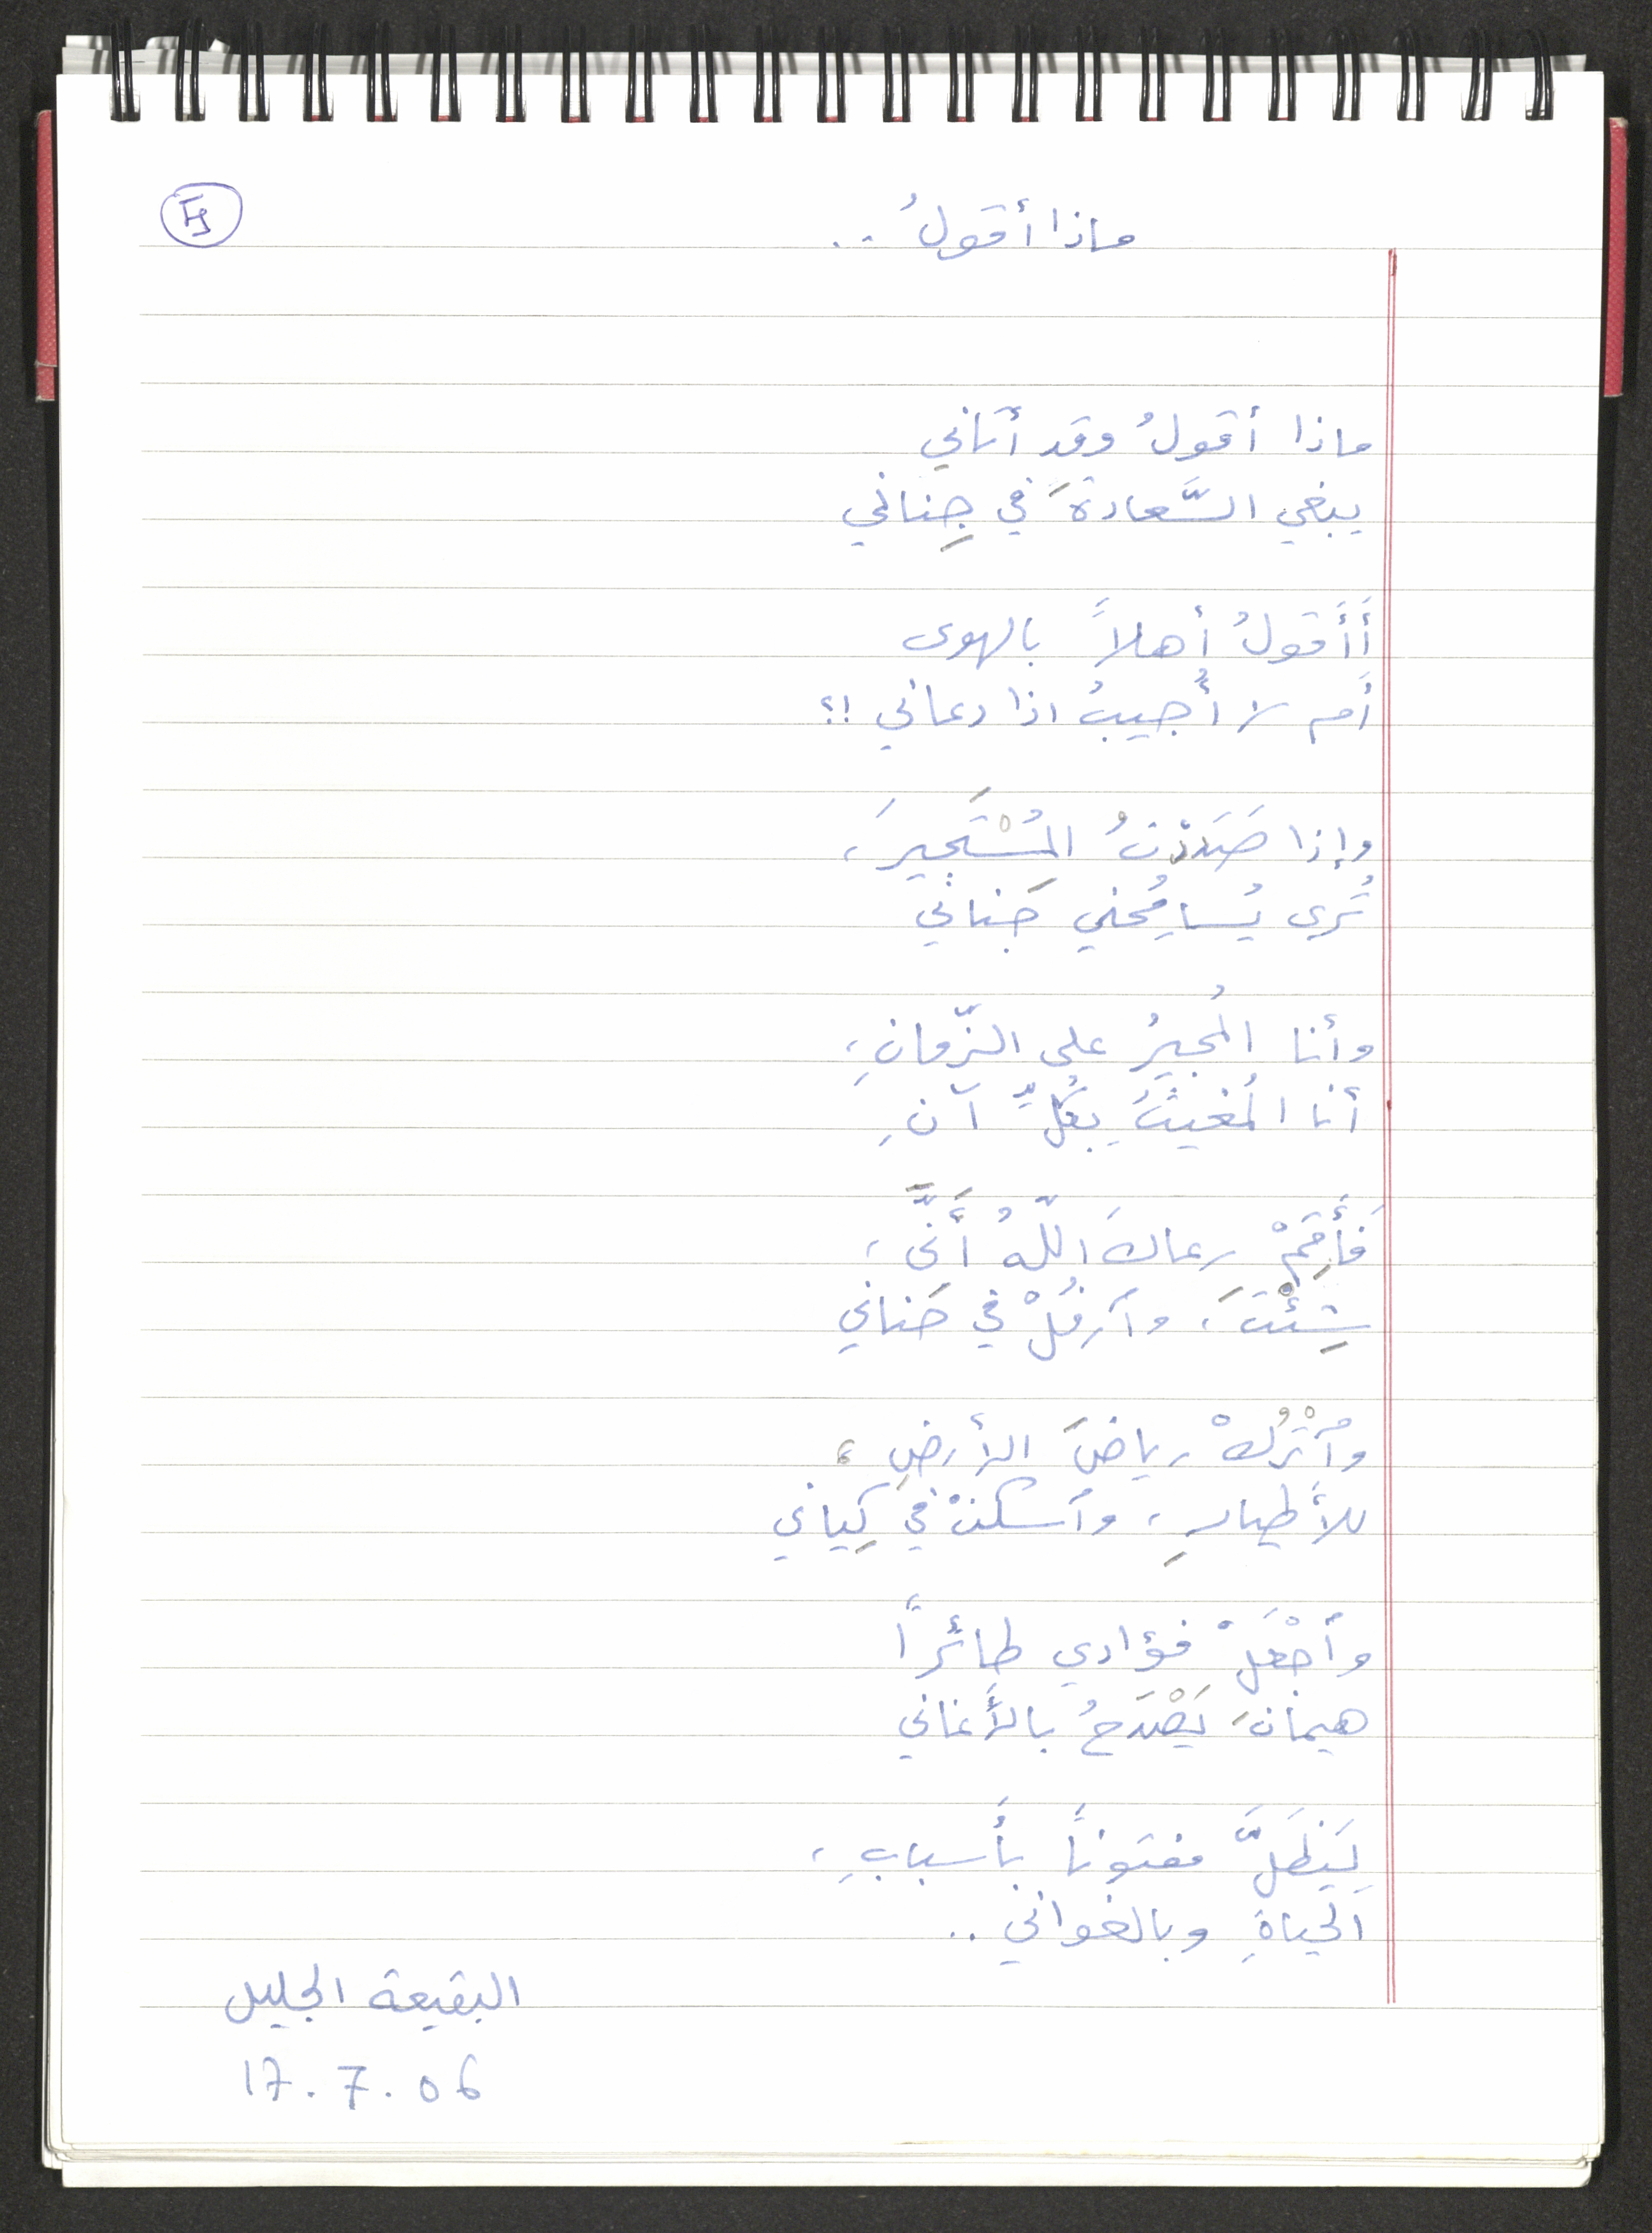 ماذا أقولُ ..
ماذا أقولُ وقد أتاني
يبغي السَّعادةَ في جِناني
أَأَقولُ أهلاً بالهوى
أَم لا أُجيبُ اذا دعاني !؟
وإذا صَدَدْتُ المُسْتَجيرَ،
تُرى يُسامِحُني جَناني
وأنا المُجيرُ على الزّمانِ،
أنا المُغيثُ بِكُلِّ آنِ
فَأَقِمْ رعاكَ اللّهُ أَنَّى،
شِئْتَ، وآرفُلْ في حَناني
وآتْرُكْ رياضَ الأرضِ،
للأَطيارِ، وآسكنْ في كِياني
وآجْعَلْ فؤادي طائراً
هيمانَ يَصْدَحُ بالأَغاني
لِيَظَلَّ مفتوناً بأَسبابِ،
اَلحياةِ وبالغواني ..
البقيعة الجليل
17.7.06